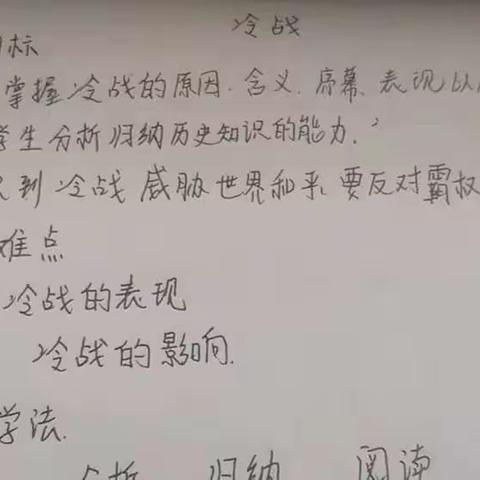 冷战
标
掌握冷战的原因.含义.序幕、表现以
学生分析归纳历史知识的能力.
到冷战威胁世界和平,要反对霸权
难点
冷战的表现
冷战的影响.
学法.
分析 归纳 阅读